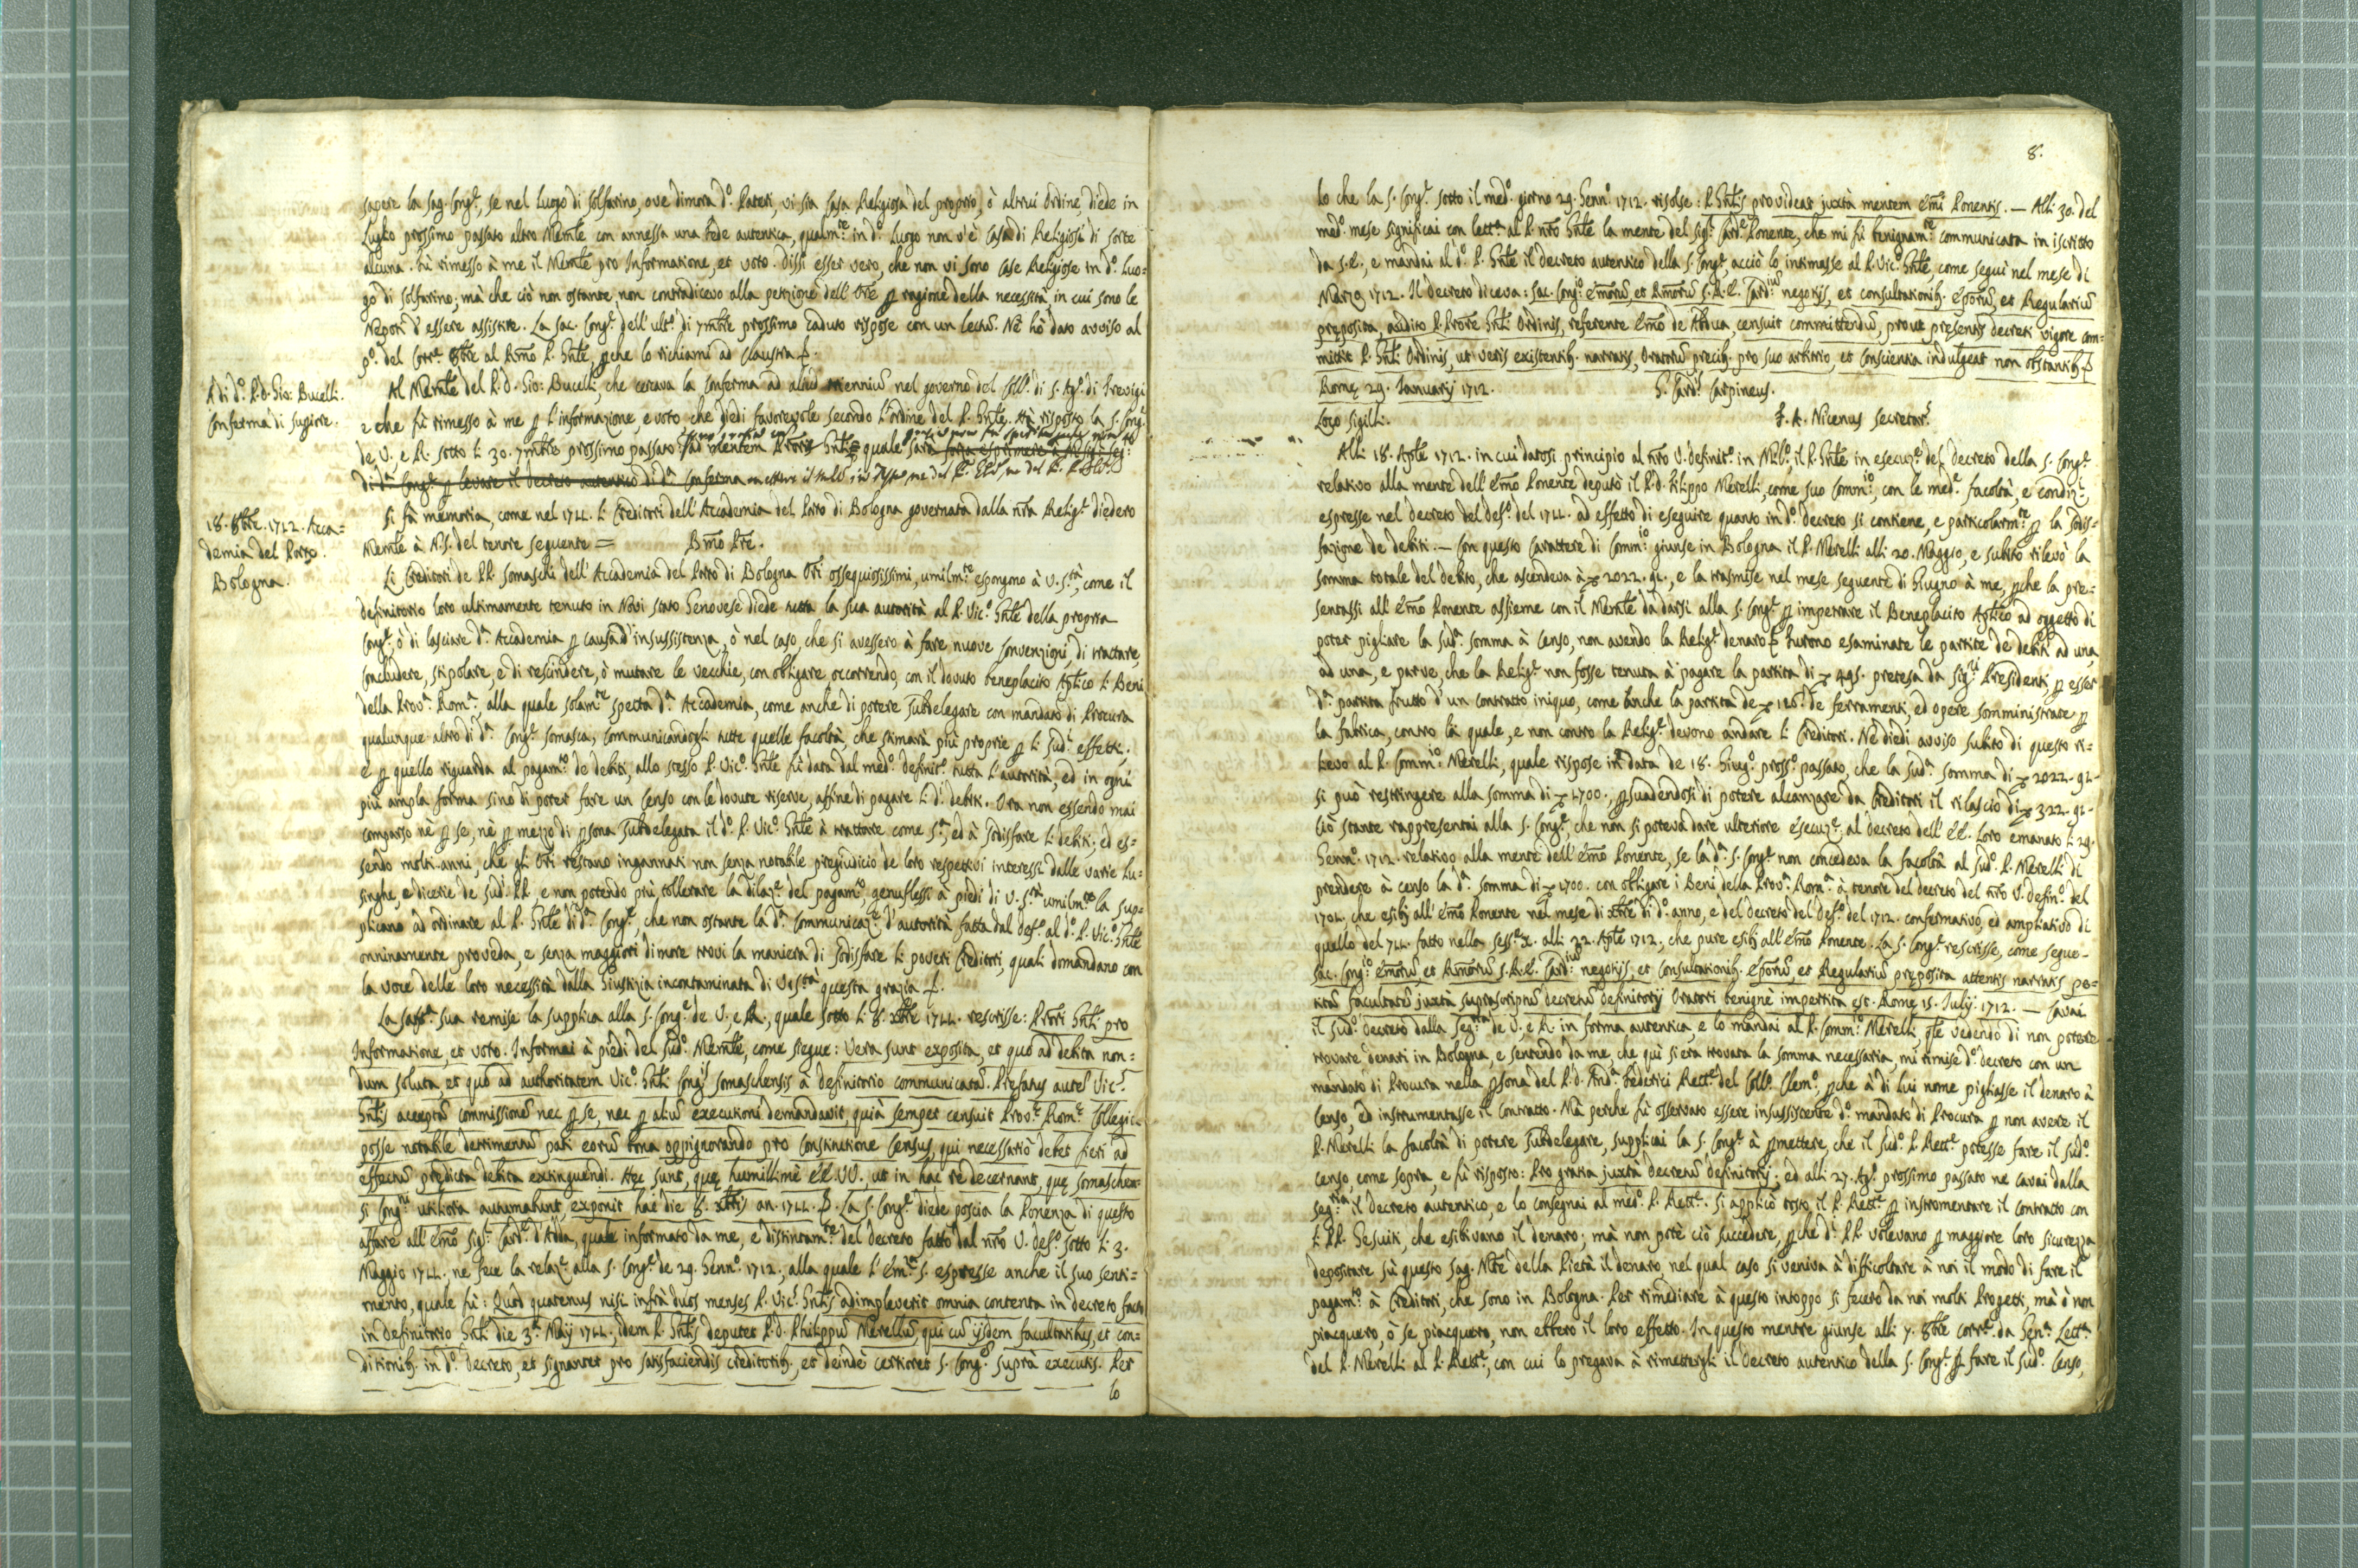 sapere la Sag. Cong.e, se nel luogo di Solfarino, ove dimora d.o Pateri, vi sia Casa Religiosa del proprio, ò altrui Ordine, diede in
Luglio prossimo passato altro Memle con annessa una fede autentica, qualm.te in d.o Luogo non v'è Casa di Religiosi di sorte
alcuna. Fù rimesso à me il Memle pro Informatione, et voto. Dissi esser vero, che non vi sono Case Religiose in d.o Luo=
go di Solfarino; mà che ciò non ostante non contradicevo alla petizione dell'Ore p ragione della necessità, in cui sono le
Nepoti d'essere assistite. La Sac. Cong.e dell'ult.o di 7mbre prossimo caduto rispose con un lectũ. Nè hò dato avviso al
p.o del Corr.e 8bre al Rmo P. Gnle, pche lo richiami ad Claustra
A di d.o P. D. Gio: Bucelli.
Conferma di Superre.
Al Memle del P. D. Gio: Bucelli, che cercava la Conferma ad aliud trienniũ nel governo del Coll.o di S. Ag.o di Trevigi
e che fù rimesso à me p l'informazione, e voto che diedi favorevole secondo l'ordine del P. Gnle. Hà risposto la S. Cong.e
de V. e R. sotto li 30. 7mbre prossimo passato ad mentem Proris Gnlis quale sarà
di d.a Cong.e p levare il Decreto autentico di d.a Conferma
18. 8bre. 1712. Acca=
demia del Porto.
Bologna.
Si fà memoria, come nel 1711. li Creditori dell'Accademia del Porto di Bologna governata dalla nra Relig.e diedero
Memle à N.S. del tenore seguente = Bmo Pre.
Li Creditori de PP. Somaschi dell'Accademia del Porto di Bologna Ori ossequiosissimi, umilm.te espongono à V. S.tà, come il
definitorio loro ultimamente tenuto in Novi Stato Genovese diede tutta la sua autorità al P. Vic.o Gnle della propria
Cong.e, ò di lasciare d.a Accademia p causa d'insussistenza, ò nel caso, che si avessero à fare nuove Convenzioni, di trattare,
concludere, stipolare, e di rescindere, ò mutare le vecchie, con obligare, occorrendo, con il dovuto beneplacito Aplico li Beni
della Prov.a Rom.a alla quale solam.te spetta d.a Accademia, come anche di potere Subdelegare con mandato di Procura
qualunque altro di d.a Cong.e Somasca, communicandogli tutte quelle facoltà, che stimarà più proprie p li sud.i effetti.
e p quello riguarda al pagam.to de debiti, allo stesso P. Vic.o Gnle fù data dal med.o definit.o tutta l'autorità, ed in ogni
più ampla forma sino di poter fare un Censo con le dovute riserve, affine di pagare li d.i debiti. Ora non essendo mai
comparso nè p se, nè p mezzo di psona Subdelegata il d.o P. Vic.o Gnle à trattare come s.a, ed à sodisfare li debiti; ed es=
sendo molti anni, che gli Ori restano ingannati non senza notabile pregiudicio de loro respettivi interessi dalle varie Lu=
singhe, e dicerie de sud.i PP. e non potendo più tollerare la dilaz.e del pagam.to, genuflessi à piedi di V. S.tà umilm.te la sup=
plicano ad ordinare al P. Gnle di d.a Cong.e, che non ostante la d.a Communicaz.e d'autorità fatta dal def.o al d.o P. Vic.o Gnle
onninamente proveda, e senza maggiori dimore trovi la maniera di sodisfare li poveri Creditori, quali domandano con
la voce delle loro necessità dalla Giustizia incontaminata di V. S.tà questa grazia
La Sant.a Sua remise la supplica alla S. Cong.e de V. e R., quale sotto li 8. xbre 1711. rescrisse: Prori Gnli pro
Informatione, et voto. Informai à piedi del sud.o Memle, come siegue: Vera sunt exposita, et quo ad debita non=
dum soluta et quo ad authoritatem Vic.o Gnli Cong.is Somaschensis à definitorio communicatã. Prefatus autẽ Vic.s
Gnlis acceptã commissionẽ nec p se, nec p aliũ executioni demandavit, quià semper censuit Prov.e Rom.e Collegia
posse notabile detrimentũ pati eorũ bona oppignorando pro constitutione Census, qui necessariò debet fieri ad
effectũ predicta debita extinguendi. Hec sunt, que humillimè EE. VV., ut in hac re decernant, que Somaschen=
si Cong.ni utiliora autumabunt, exponit hac die 8. xbris an. 1711. La S. Cong.e diede poscia la Ponenza di questo
affare all'Emo Sig.r Card.e d'Adda, quale informato da me, e distintam.te del decreto fatto dal nro V. def.o sotto li 3.
Maggio 1711. ne fece la relaz.e alla S. Cong.e de 29. Genn.o 1712., alla quale l'Em.za S. espresse anche il suo senti=
mento, quale fù: Quod quatenus nisi infrà duos menses P. Vic.s Gnlis adimpleverit omnia contenta in decreto facto
in definitorio Gnli die 3.a Maij 1711., idem P. Gnlis deputet P. D. Philippũ Merellũ, qui cũ ijsdem facultatibus, et con=
ditionib. in d.o decreto, et signanter pro satisfaciendis creditorib. et deindè certioret S. Cong.m suprà executis. Per
lo
8.
lo che la S. Cong.e sotto il med.o giorno 29. Genn.o 1712. risolse: P. Gnlis provideat juxtà mentem Emi Ponentis. — Alli 30. del
med.o mese significai con lett.a al P. nro Gnle la mente del Sig.r Card.e Ponente, che mi fù benignam.te communicata in iscritto
da S. E., e mandai al d.o P. Gnle il decreto autentico della S. Cong.e, acciò lo intimasse al P. Vic.o Gnle, come seguì nel mese di
Marzo 1712. Il decreto diceva: Sac. Cong.o Emorũ, et Rmorũ S. R. E. Card.iũ negotijs, et consultationib. Eporũ, et Regulariũ
preposita, audito P. Prore Gnli Ordinis, referente Emo de Abdua, censuit committendũ, prout presentis decreti vigore com=
mittit P. Gnli Ordinis, ut veris existentib. narratis, Oratorũ precib. pro suo arbitrio, et conscientia indulgeat non obstantib.
Rome 29. Januarij 1712. G. Card. Carpineus.
Loco Sigilli. F. A. Nicenus Secretar.s
Alli 18. Aprile 1712. in cui datosi principio al nro V. definit.o in Mil.o il P. Gnle in esecuz.e del decreto della S. Cong.e
relativo alla mente dell'Emo Ponente deputò il P. D. Filippo Merelli, come suo Comm.io, con le med.e facoltà, e condiz.i,
espresse nel decreto del def.o del 1711. ad effetto di eseguire quanto in d.o decreto si contiene, e particolarm.te p la sodis=
fazione de debiti. — Con questo Carattere di Comm.io giunse in Bologna il P. Merelli alli 20. Maggio, e subito rilevò la
somma totale del debito, che ascendeva à 2022. 91., e la trasmise nel mese seguente di Giugno à me, pche la pre=
sentassi all'Emo Ponente assieme con il Memle da darsi alla S. Cong.e p impetrare il Beneplacito Aplico ad oggetto di
poter pigliare la sud.a somma à Censo, non avendo la Relig.e denaro. Furono esaminate le partite de debiti ad una
ad una, e parve, che la Relig.e non fosse tenuta à pagare la partita di 495. pretesa da Sig.ri Presidenti, p esser
d.a partita frutto d'un contratto iniquo, come anche la partita de 126. de ferramenti, ed opere somministrate p
la fabrica, contro la quale, e non contro la Relig.e devono andare li Creditori. Nè diedi avviso subito di questo ri=
lievo al P. Comm.io Merelli, quale rispose in data de 18. Giug.o pross.o passato, che la sud.a somma di 2022. 91.
si può restringere alla somma di 1700., psuadendosi di potere alcanzare da Creditori il rilascio di 322. 91.
Ciò stante rappresentai alla S. Cong.e che non si poteva dare ulteriore esecuz.e al decreto dell'EE. Loro emanato li 29.
Genn.o 1712. relativo alla mente dell'Emo Ponente, se la d.a S. Cong.e non concedeva la facoltà al sud.o P. Merelli di
prendere à censo la d.a somma di 1700. con obligare i Beni della Prov.a Rom.a à tenore del decreto del nro V. defin.o del
1711. che esibij all'Emo Ponente nel mese di xbre di d.o anno, e del decreto del Def.o del 1712. confermativo, ed ampliativo di
quello del 711. fatto nella sess.e X. alli 22. Aple 1712., che pure esibij all'Emo Ponente. La S. Cong.e rescrisse, come segue.
Sac. Cong.o Emorũ, et Rmorũ S. R. E. Card.iũ negotijs, et Consultationib. Eporũ, et Regulariũ preposita attentis narratis pe=
titã facultatẽ juxtà suprascriptũ decretũ definitorij Oratori benignè impertita est. Rome 15. Julij 1712. — Cavai
il sud.o decreto dalla Seg.ria de V. e R. in forma autentica, e lo mandai al P. Comm.io Merelli, qle vedendo di non potere
trovare denari in Bologna, e sentendo da me, che quì si era trovata la somma necessaria, mi rimise d.o decreto con un
mandato di Procura nella psona del P. D. And.a Federici Rett.e del Coll.o Clem.o, pche à di lui nome pigliasse il denaro à
Censo, ed instrumentasse il contratto. Mà perche fù osservato essere insussistente d.o mandato di Procura p non avere il
P. Merelli la facoltà di potere Subdelegare, supplicai la S. Cong.e à pmettere, che il sud.o P. Rett.e potesse fare il sud.o
censo, come sopra, e fù risposto: Pro gratia juxtà decretũ definitorij; ed alli 27. Ag.o prossimo passato ne cavai dalla
Seg.ria il decreto autentico, e lo consegnai al med.o P. Rett.e. Si applicò tosto il P. Rett.e p instromentare il contratto con
li PP. Gesuiti, che esibivano il denaro; mà non potè ciò succedere, pche d.i PP. volevano p maggiore loro sicurezza
depositare sù questo Sag. Mte della Pietà il denaro, nel qual caso si veniva à difficoltare à noi il modo di fare il
pagam.to à Creditori, che sono in Bologna. Per rimediare à questo intoppo si fecero da noi molti Progetti, mà ò non
piacquero, ò se piacquero, non ebbero il loro effetto. In questo mentre giunse alli 7. 8bre corr.e da Gen.a Lett.a
del P. Merelli al P. Rett.e, con cui lo pregava à rimettergli il decreto autentico della S. Cong.e p fare il sud.o Censo,